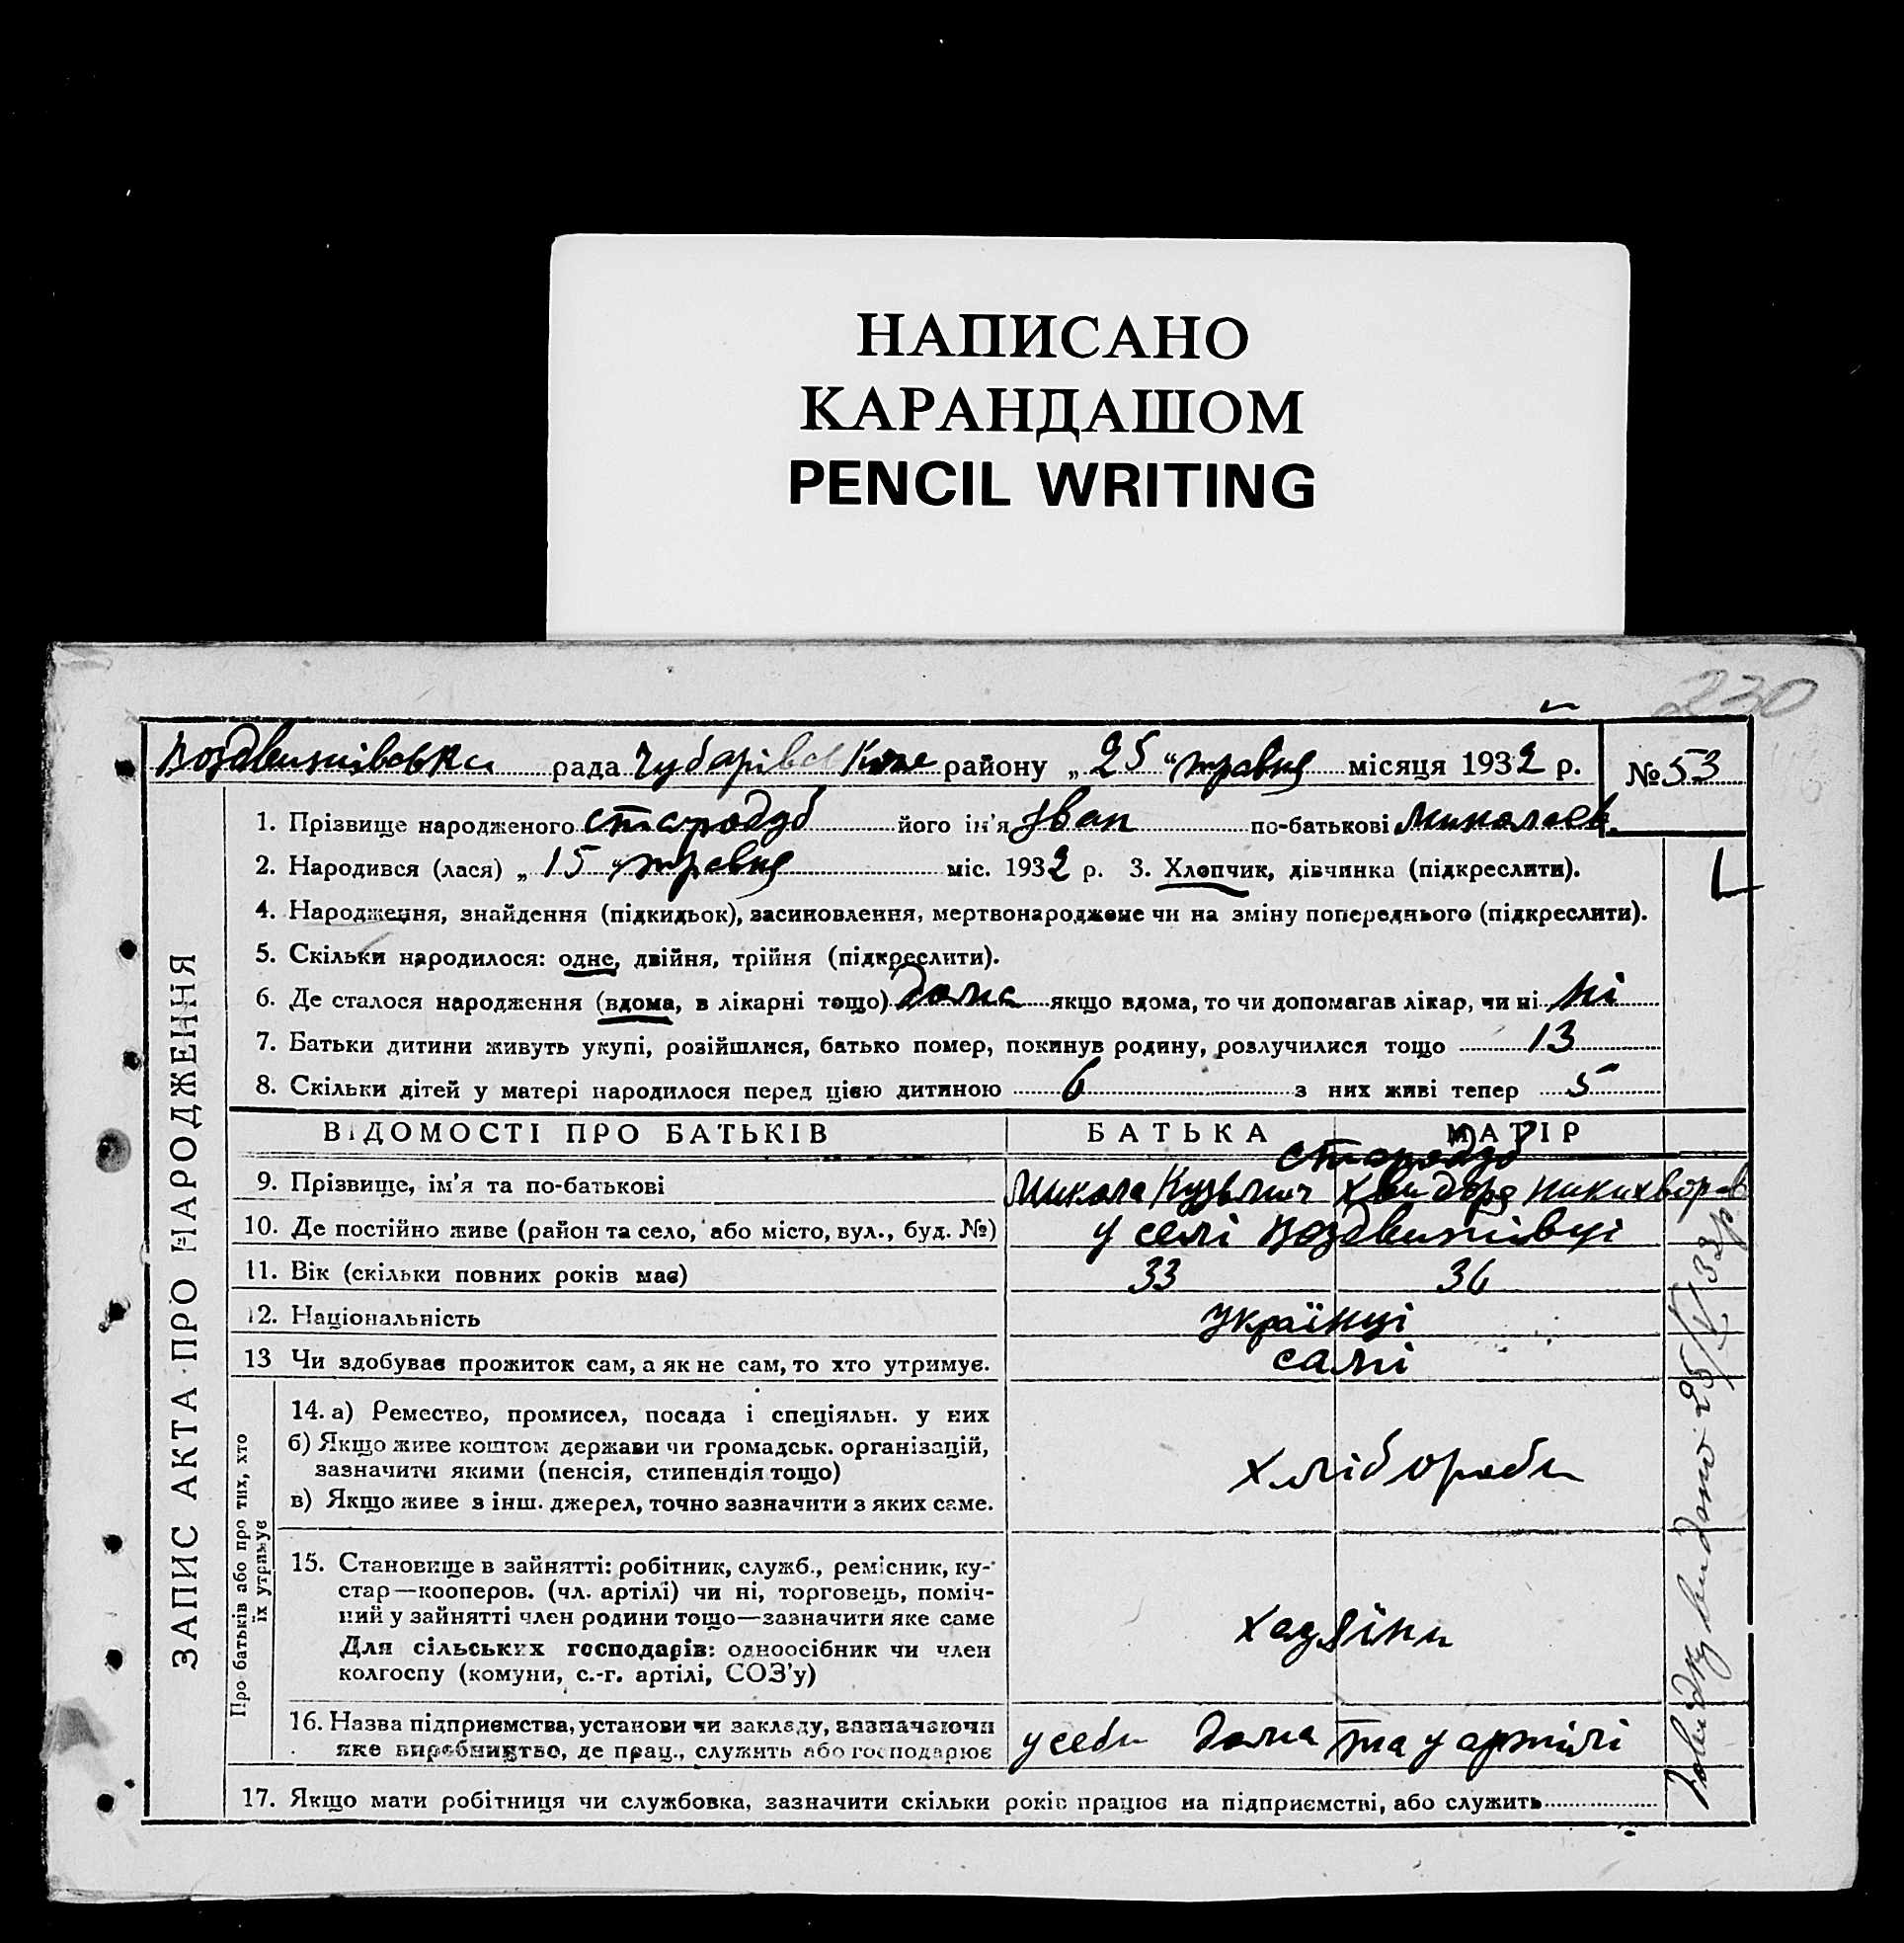 НАПИСАНО
КАРАНДАШОМ
PENCIL WRITING
230
Воздвижнівська рада Чубарівського району „25“ травня місяця 1932 р. № 53
1. Прізвище народженого Стародуб його ім'я Іван по-батькові Миколаєв.
2. Народився (лася) „15“ травня міс. 1932 р. 3. Хлопчик, дівчинка (підкреслити).
4. Народження, знайдення (підкидьок), засиновлення, мертвонароджене чи на зміну попереднього (підкреслити).
5. Скільки народилося: одне, двійня, трійня (підкреслити).
6. Де сталося народження (вдома, в лікарні тощо) дома якщо вдома, то чи допомагав лікар, чи ні ні
7. Батьки дитини живуть укупі, розійшлися, батько помер, покинув родину, розлучилися тощо 13
8. Скільки дітей у матері народилося перед цією дитиною 6 з них живі тепер 5
ВІДОМОСТІ ПРО БАТЬКІВ БАТЬКА МАТІР
Стародуб
9. Прізвище, ім'я та по-батькові Микола Кузьмич Хведора Никихворов
10. Де постійно живе (район та село, або місто, вул., буд. №) у селі Воздвижнівці
11. Вік (скільки повних років має) 33 36
12. Національність Українці
13 Чи здобуває прожиток сам, а як не сам, то хто утримує. самі
14. а) Ремество, промисел, посада і спеціяльн. у них
б) Якщо живе коштом держави чи громадськ. організацій,
зазначити якими (пенсія, стипендія тощо) хлібороби
в) Якщо живе з інш. джерел, точно зазначити з яких саме.
15. Становище в зайнятті: робітник, служб., ремісник, ку-
стар—кооперов. (чл. артілі) чи ні, торговець, поміч-
ний у зайнятті член родини тощо—зазначити яке саме хазяіни
Для сільських господарів: одноосібник чи член
колгоспу (комуни, с.-г. артілі, СОЗ'у)
16. Назва підприємства, установи чи закладу, зазначаючи
яке виробництво, де прац., служить або господарює у себи дома та у артілі
17. Якщо мати робітниця чи службовка, зазначити скільки років працює на підприємстві, або служить
ЗАПИС АКТА ПРО НАРОДЖЕННЯ
Про батьків або про тих, хто
їх утримує
Довидку видано 25/V 32 р